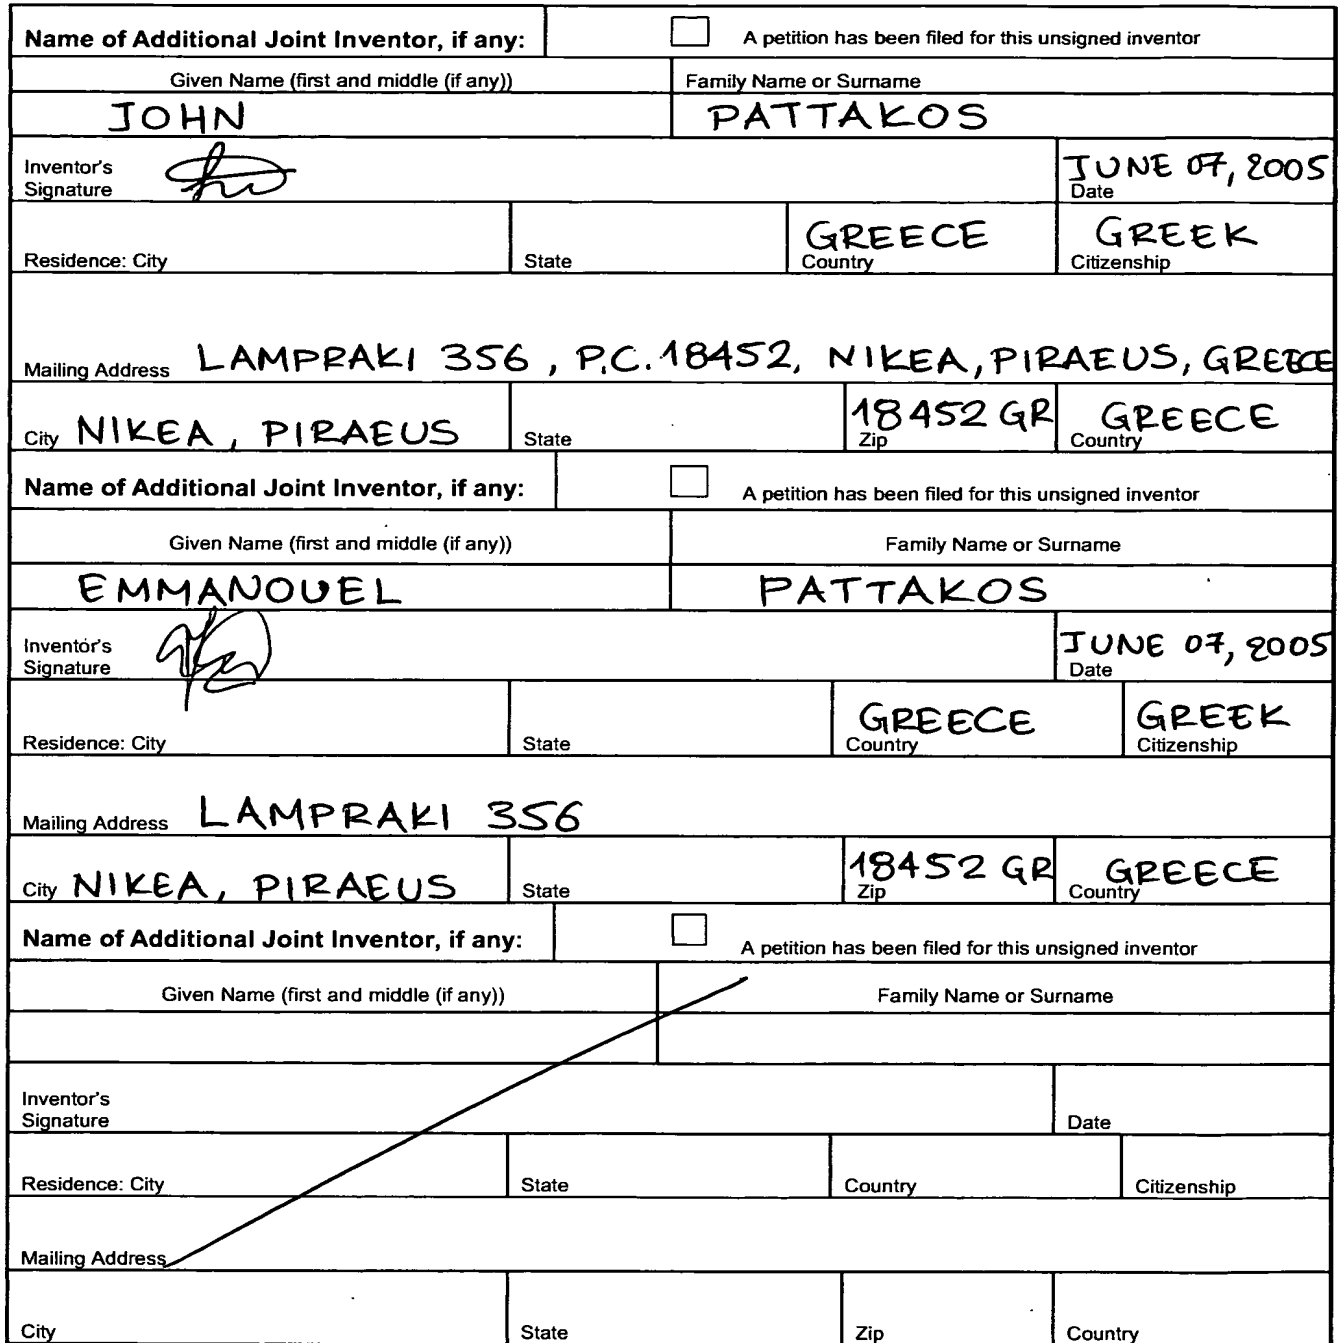 Name of Additional Joint Inventor, if any: A petition has been filed for this unsigned inventor
Given Name (first and middle (if any)) Family Name or Surname
JOHN PATTAKOS
Inventor's
Signature
JUNE 07, 2005
Date
GREECE GREEK
Residence: City State Country Citizenship
Mailing Address LAMPRAKI 356, P.C. 18452, NIKEA, PIRAEUS, GREECE
18452 GR GREECE
City NIKEA, PIRAEUS State Zip Country
Name of Additional Joint Inventor, if any: A petition has been filed for this unsigned inventor
Given Name (first and middle (if any)) Family Name or Surname
EMMANOUEL PATTAKOS
Inventor's
Signature
JUNE 07, 2005
Date
GREECE GREEK
Residence: City State Country Citizenship
Mailing Address LAMPRAKI 356
18452 GR GREECE
City NIKEA, PIRAEUS State Zip Country
Name of Additional Joint Inventor, if any: A petition has been filed for this unsigned inventor
Given Name (first and middle (if any)) Family Name or Surname
Inventor's
Signature Date
Residence: City State Country Citizenship
Mailing Address
City State Zip Country